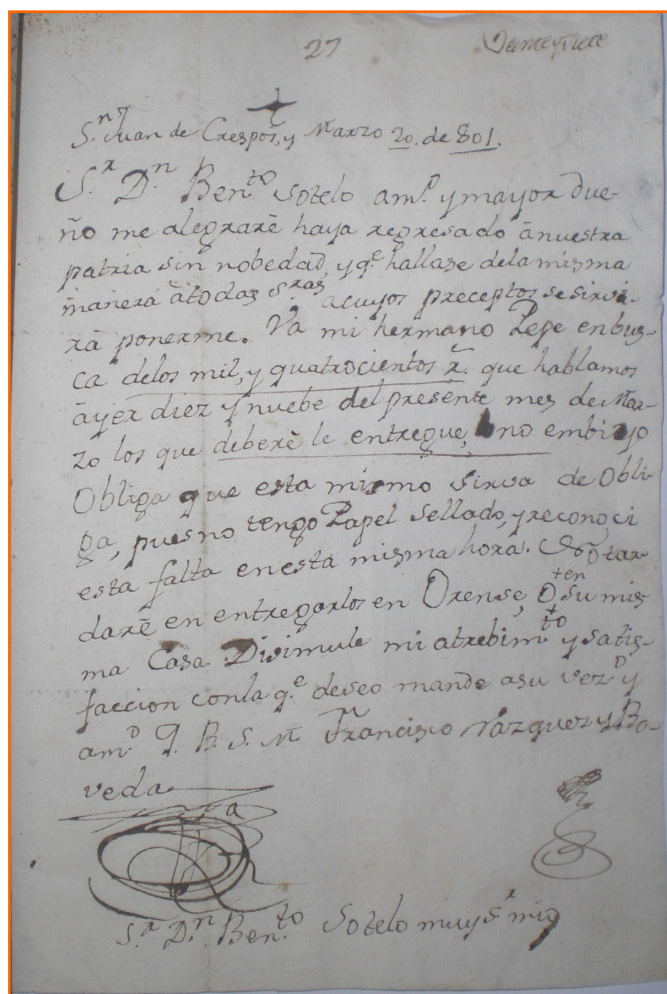 27 Veinteysiete
S.n Juan de Crespos, y Marzo 20. de 801.
S.r D.n Ben.to Sotelo am.o y mayor due-
ño me alegrarè haya regresado ànuestra
patria sin nobedad, y q.e hallase dela misma
manera àtodas S.ras acuyos preceptos se sirvi-
rà ponerme. Va mi hermano Pepe enbus-
ca delos mil, y quatrocientos r.s que hablamos
àyer diez y nuebe del presente mes de Mar-
zo los que deberè le entregue, no embio
Obliga que esta mismo sirva de Obli-
ga, pues no tengo Papel Sellado, y reconoci
esta falta enesta misma hora. No tar-
darè en entregarlos en Orense, ò +en su mis-
ma Casa. Disimule mi atrebim.to y satis-
faccion conla q.e deseo mande asu vez.o y
am.o Q. B. S. M. Francisco Vazquez y Bo-
veda
S.r D.n Ben.to Sotelo muy S.r mio